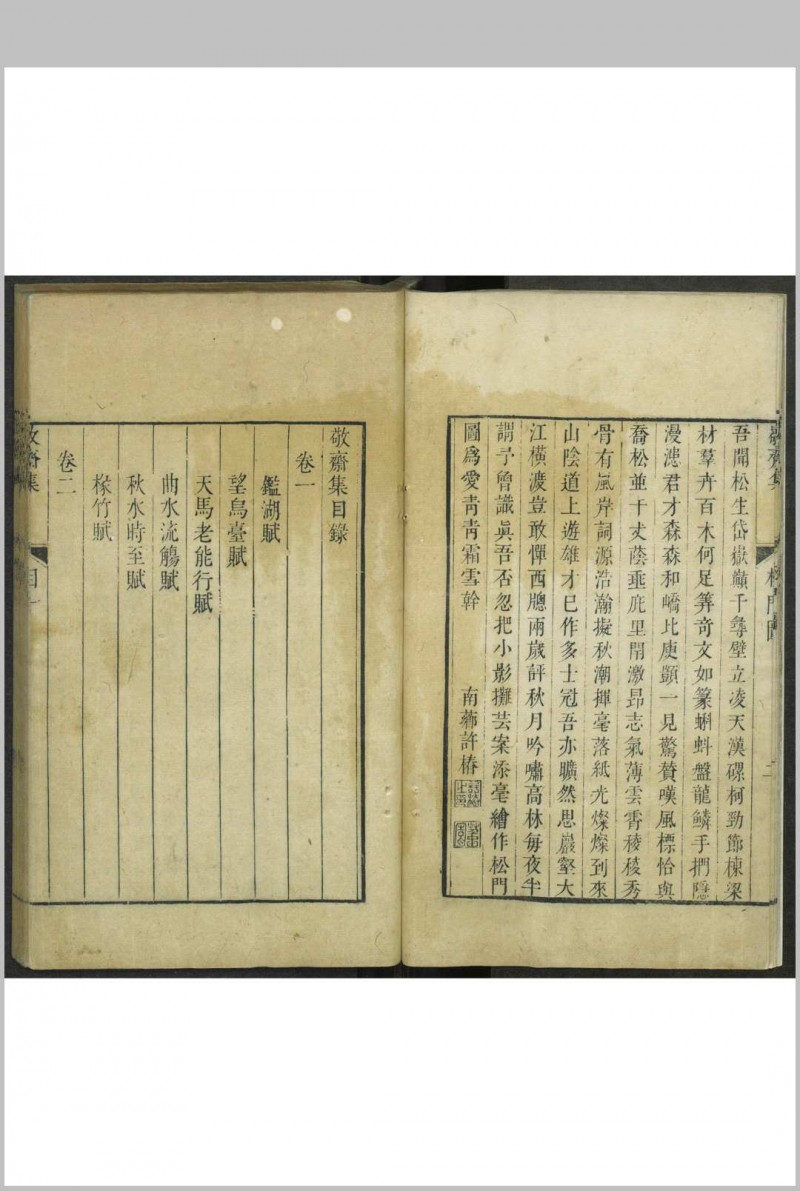 吾聞松生岱嶽巔千尋壁立凌天漢磥柯勁節棟梁
材羣卉百木何足筭奇文如篆蝌蚪盤龍鱗手捫隱
漫漶君才森森和嶠比庾顗一見驚賛嘆風標恰與
喬松並千丈蔭垂庇里閈激昂志氣薄雲霄稜稜秀
骨有風岸詞源浩瀚擬秋潮揮毫落紙光燦燦到來
山陰道上遊雄才已作多士冠吾亦曠然思巖壑大
江橫渡豈敢憚西牕兩歲評秋月吟嘯高林每夜半
謂予曾識眞吾否忽把小影攤芸案添毫繪作松門
圖爲愛靑靑霜雪幹
南薌許椿
敬齋集目錄
卷一
鑑湖賦
望烏臺賦
天馬老能行賦
曲水流觴賦
秋水時至賦
椽竹賦
卷二
敬齋集 目一